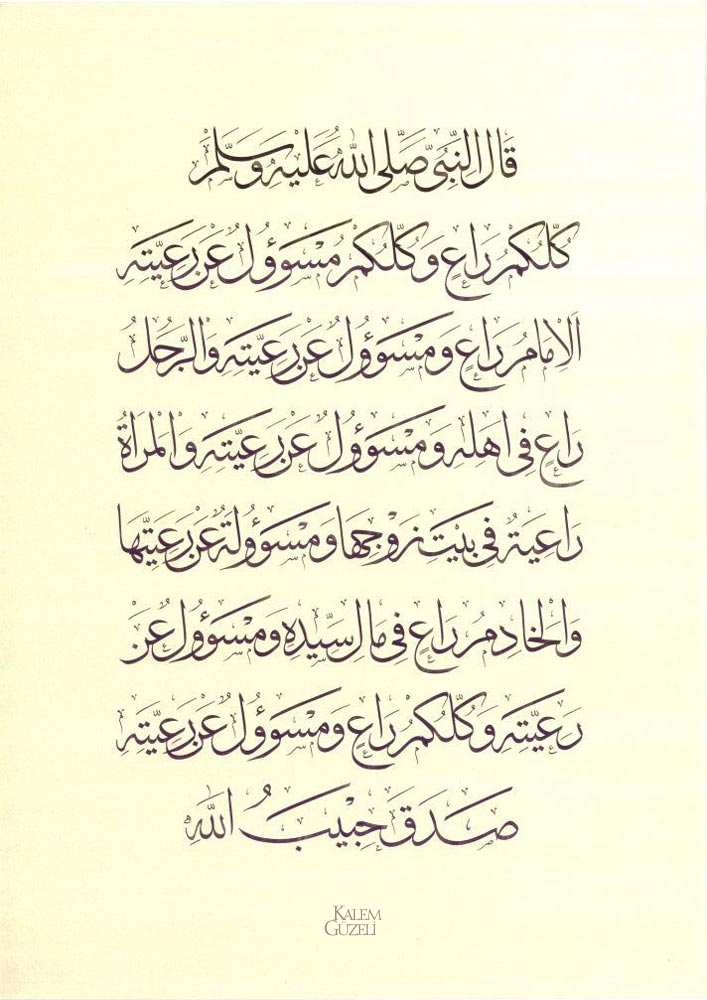 قَالَ النَّبِيُّ صَلَّى اللهُ عَلَيْهِ وَسَلَّمَ
كُلُّكُمْ رَاعٍ وَكُلُّكُمْ مَسْؤُولٌ عَنْ رَعِيَّتِهِ
اَلْاِمَامُ رَاعٍ وَمَسْؤُولٌ عَنْ رَعِيَّتِهِ وَالرَّجُلُ
رَاعٍ فِى اَهْلِهِ وَمَسْؤُولٌ عَنْ رَعِيَّتِهِ وَالْمَرْاَةُ
رَاعِيَةٌ فِى بَيْتِ زَوْجِهَا وَمَسْؤُولَةٌ عَنْ رَعِيَّتِهَا
وَالْخَادِمُ رَاعٍ فِى مَالِ سَيِّدِهِ وَمَسْؤُولٌ عَنْ
رَعِيَّتِهِ وَكُلُّكُمْ رَاعٍ وَمَسْؤُولٌ عَنْ رَعِيَّتِهِ
صَدَقَ حَبِيبُ اللهِ
KALEM
GÜZELİ